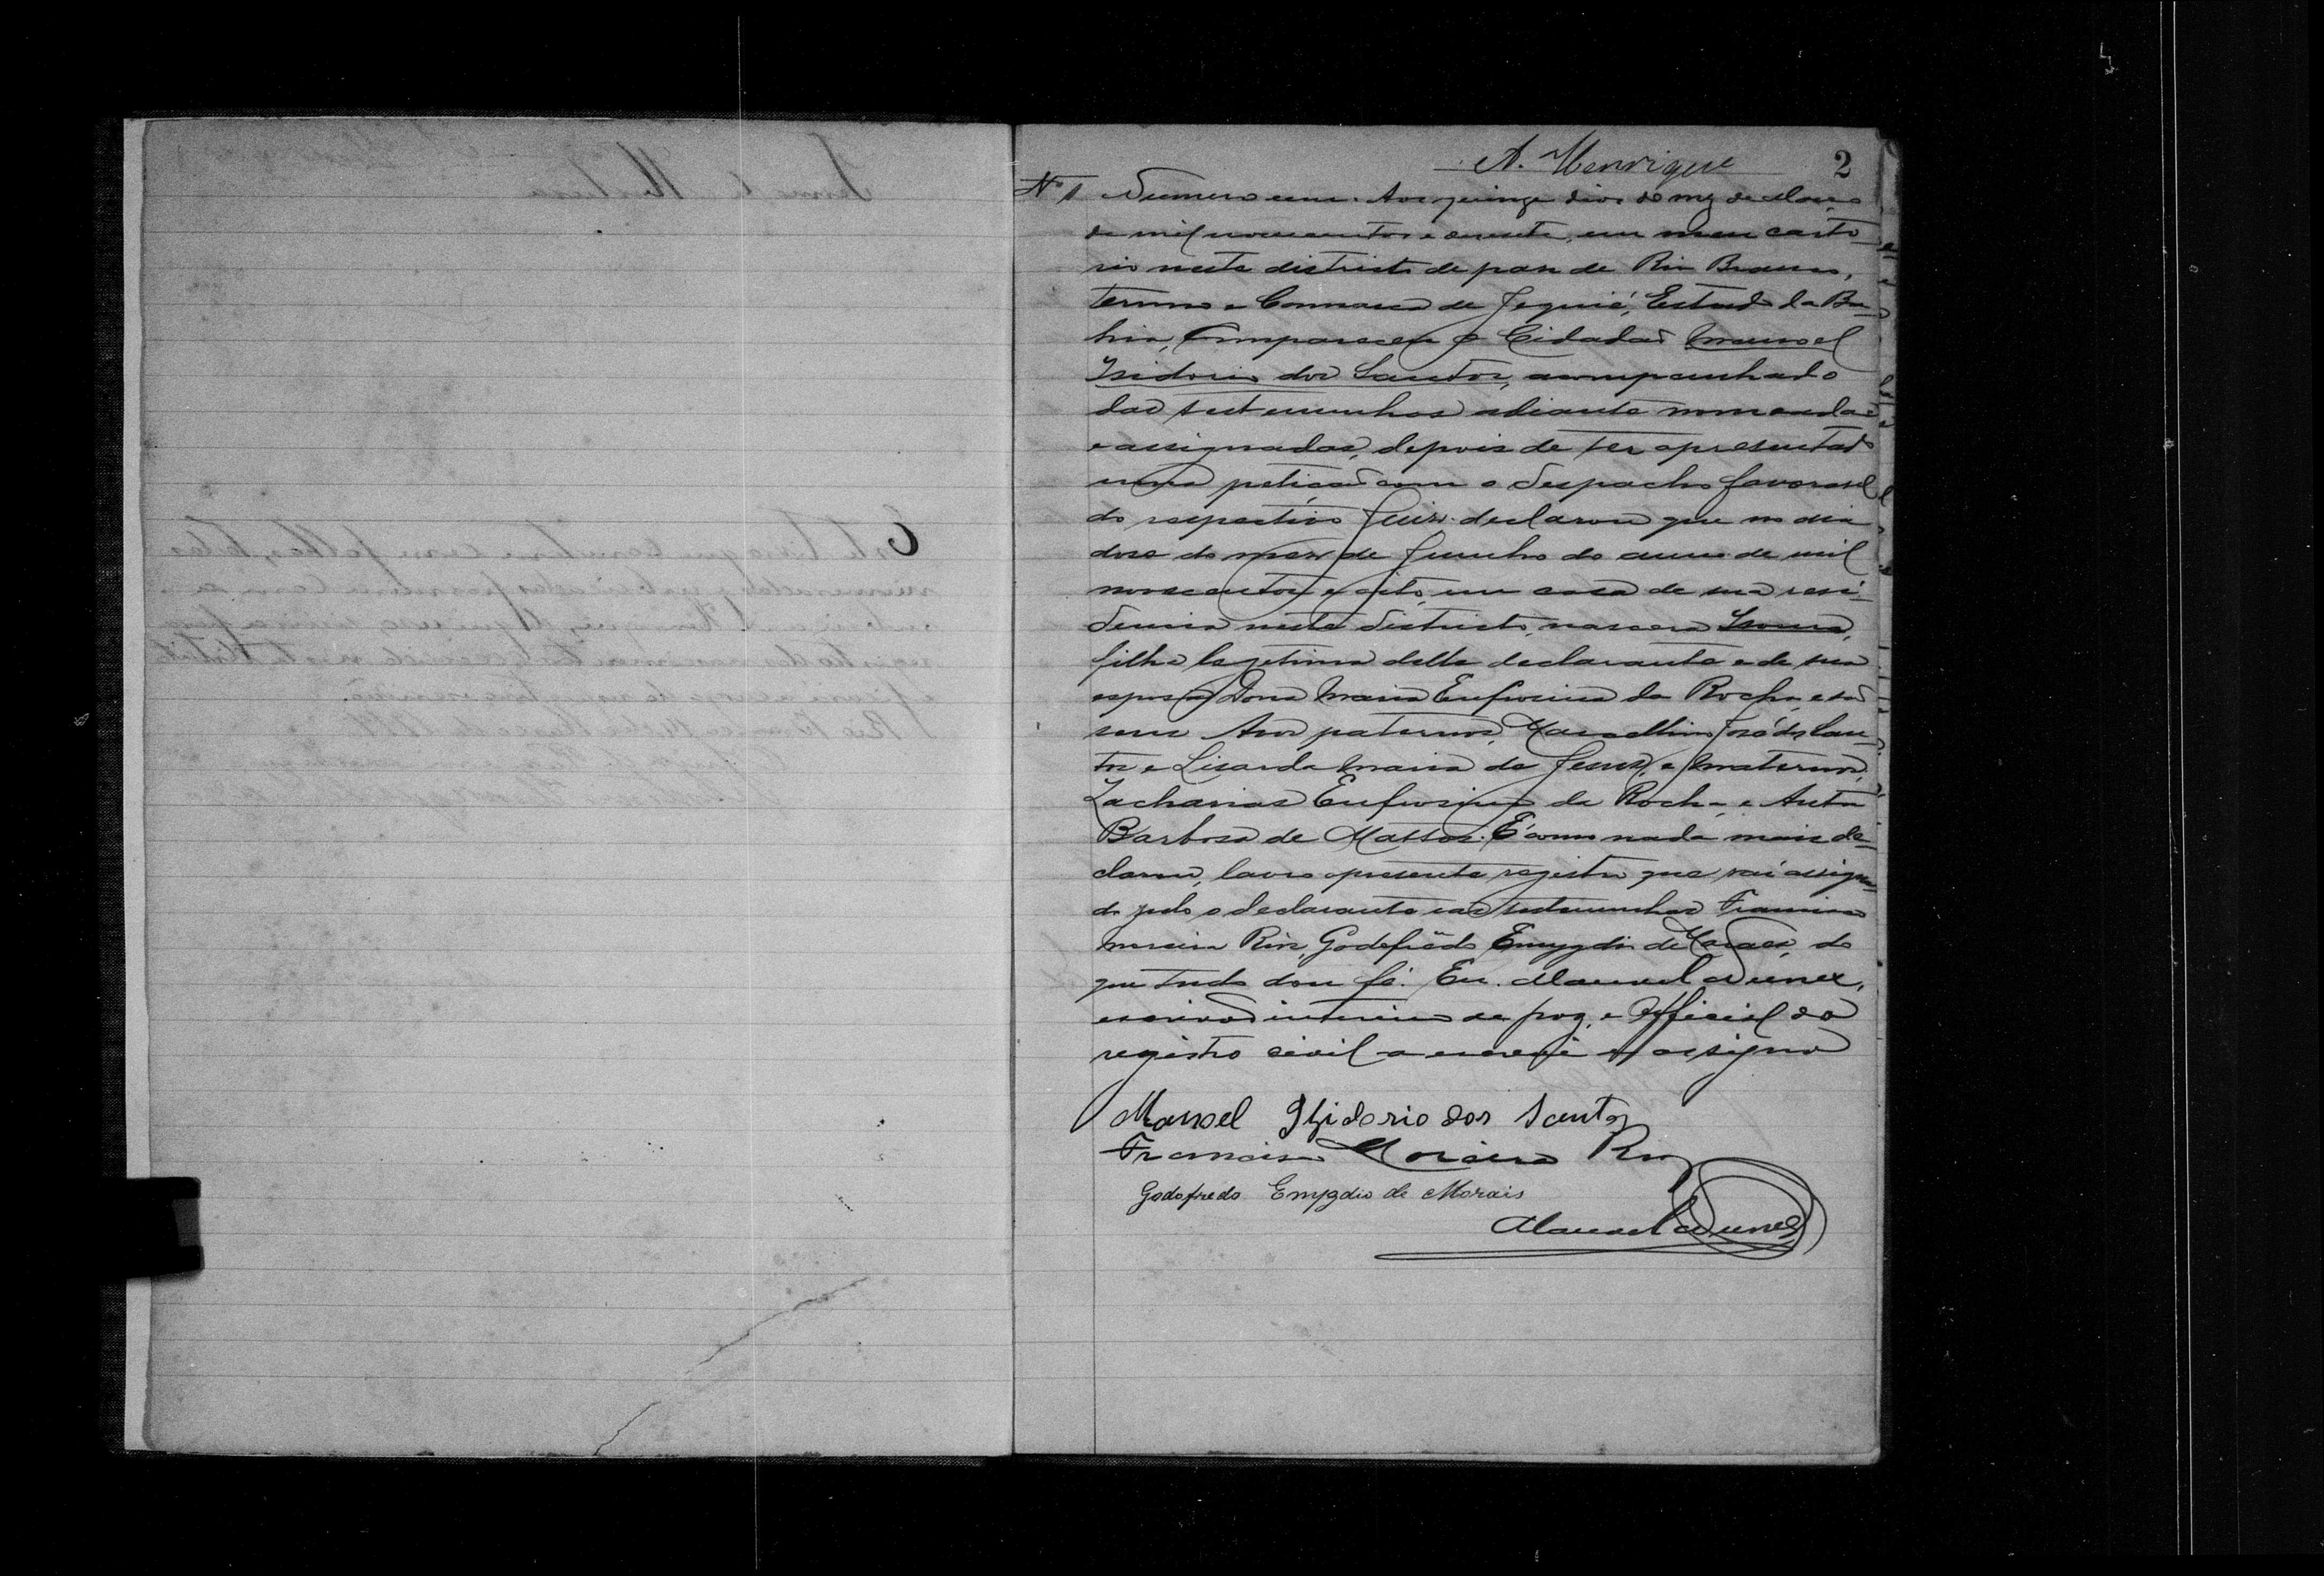 A. Henrique 2
Nº 1 Numero um. Aos quinze dias do mez de Março
de mil novecentos e , em meu carto
rio neste districto de paz de Rio Branco,
termo e Commarca de Jequié, Estado da Ba-
hia, compareceu o Cidadaõ Manoel
Isidorio dos Santos, acompanhado
das testemunhas adiante nomeadas
e assignadas, depois de ter apresentado
uma petiçaõ com o despacho favoravel
do respectivo Juiz. declarou que no dia
doze do mez de Junho do anno de mil
novecentos e oito, em casa de sua resi-
dencia neste districto, nascera
filha legetima delle declarante e de sua
esposa Dona Maria Eufrosina da Rocha, e saõ
seus Avos paternos, Marcellino José dos San-
tos e Lisarda Maria de Jesus, e maternos,
Zacharias Eufrosino da Rocha e
Barbosa de Mattos. E como nada mais de-
clarou, lavro o presente registro que vai assigna-
do pelo o declarante e as testemunhas Francisco
Moreira Rios, Godofrêdo Emygdio de Moraes, do
que tudo dou fé. Eu. Manoel Nunes,
escrivaõ interino de paz, e Official do
registro civil o escrevi e assigno
Manoel Izidorio dos Santos
Francisco Moreira Rios
Godofredo Emygdio de Morais
Manoel Nunes